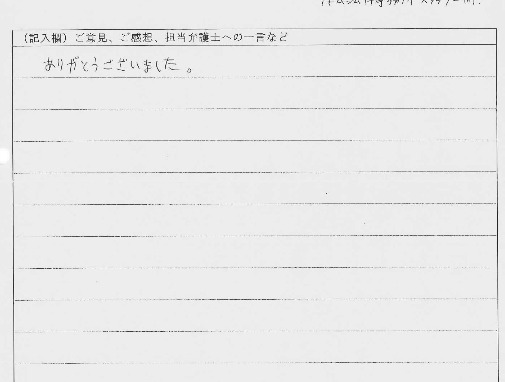 （記入欄）ご意見、ご感想、担当弁護士への一言など
ありがとうございました。